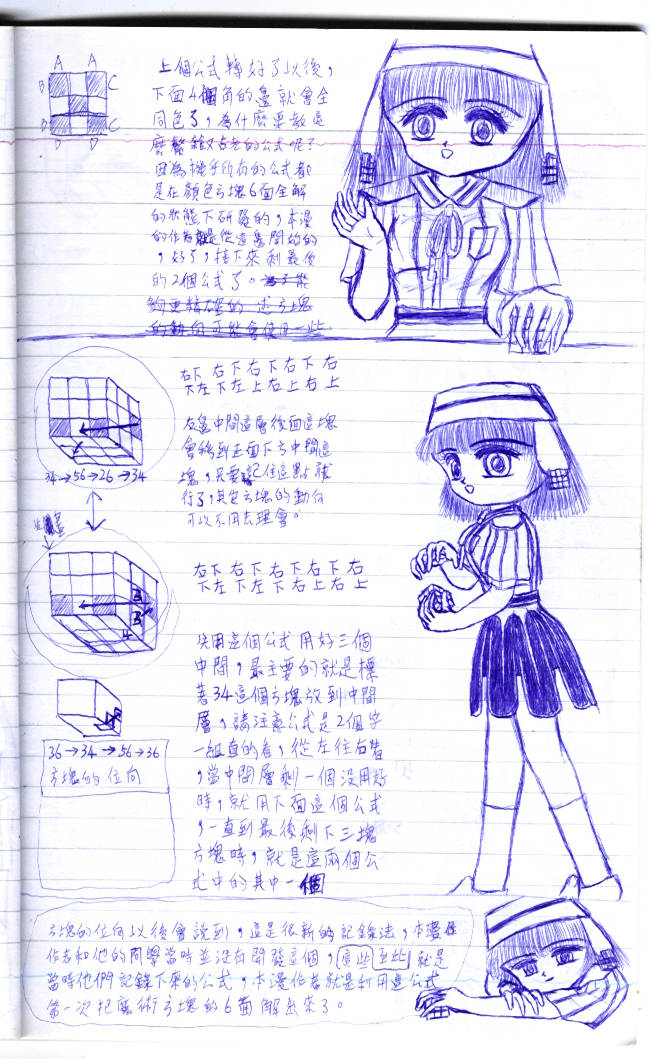 A A
B C
B C
D D
上個公式轉好了以後，
下面4個角的邊就會全
同色了，為什麼要教這
公式呢？
因為幾乎所有的公式都
是在顏色方塊6面全解
的狀態下研發的，本漫
的作者就是從這裏開始的
，好了，接下來剩最後
的2個公式了。
右下右下右下右下右
下左下左上右上右上
右邊中間這層後面這塊
會移到正面下方中間這
塊，只要記住這點就
行了，其它方塊的動向
可以不用去理會。
34→56→26→34
右下右下右下右下右
下左下左下右上右上
3
3
4
先用這個公式用好三個
中間，最主要的就是標
著34這個方塊放到中間
層，請注意公式是2個字
一組直的看，從左往右看
，當中間層剩一個沒用好
時，就用下面這個公式
，一直到最後剩下三塊
方塊時，就是這兩個公
式中的其中一個
36→34→56→36
方塊的位向
方塊的位向以後會說到，這是很新的記錄法，本漫
作者和他的同學當時並沒有開發這個，這些 就是
當時他們記錄下來的公式，本漫作者就是利用這公式
第一次把魔術方塊的6面解出來了。